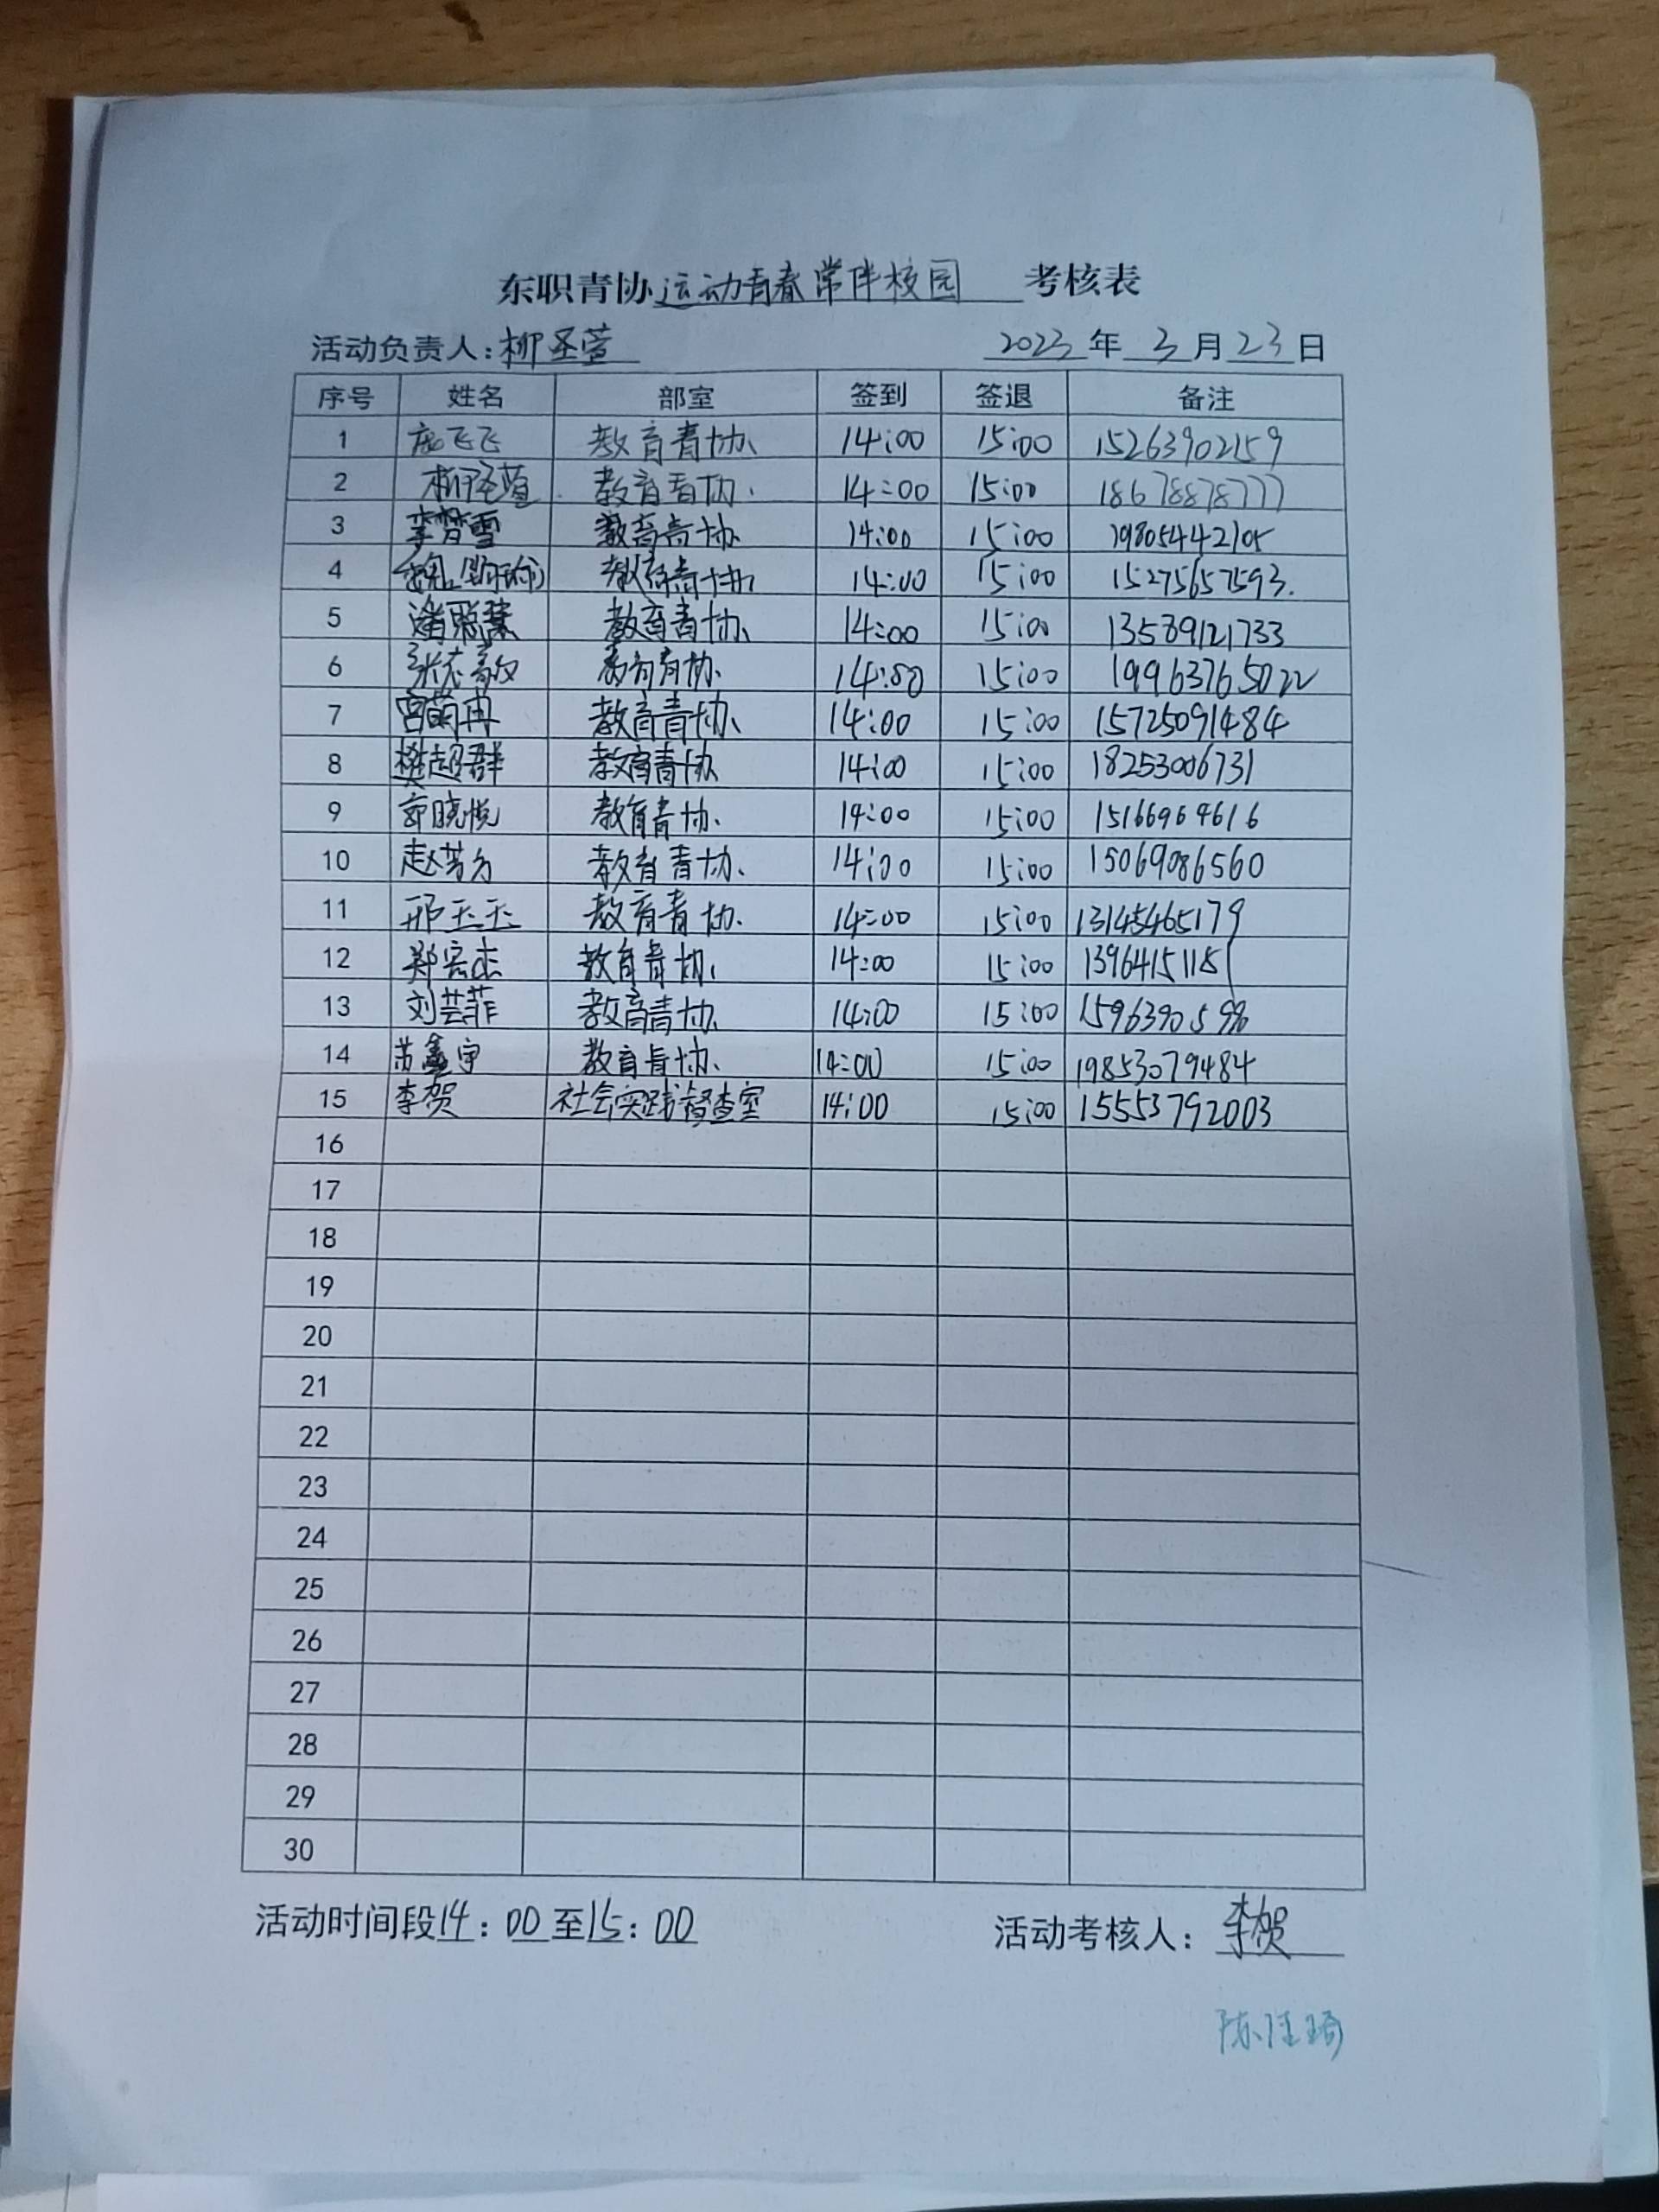 东职青协运动青春常伴校园 考核表
活动负责人:柳圣萱 2023年3月23日
序号 姓名 部室 签到 签退 备注
1 庞飞飞 教育青协 14:00 15:00 15263902159
2 柳圣萱 教育青协 14:00 15:00 18678878777
3 李梦雪 教育青协 14:00 15:00 19805442105
4 教育青协 14:00 15:00 15275657593
5 教育青协 14:00 15:00 13589121733
6 教育青协 14:00 15:00 19963765022
7 宫萌冉 教育青协 14:00 15:00 15725091484
8 樊超群 教育青协 14:00 15:00 18253006731
9 郭晓悦 教育青协 14:00 15:00 15166964616
10 赵芳 教育青协 14:00 15:00 15069086560
11 邢玉玉 教育青协 14:00 15:00 13145465179
12 郑宏杰 教育青协 14:00 15:00 13964151151
13 刘芸菲 教育青协 14:00 15:00 15963905
14 苏鑫宇 教育青协 14:00 15:00 19853079484
15 李贺 社会实践督查室 14:00 15:00 15553792003
16
17
18
19
20
21
22
23
24
25
26
27
28
29
30
活动时间段14:00至15:00 活动考核人:李贺
陈佳琦